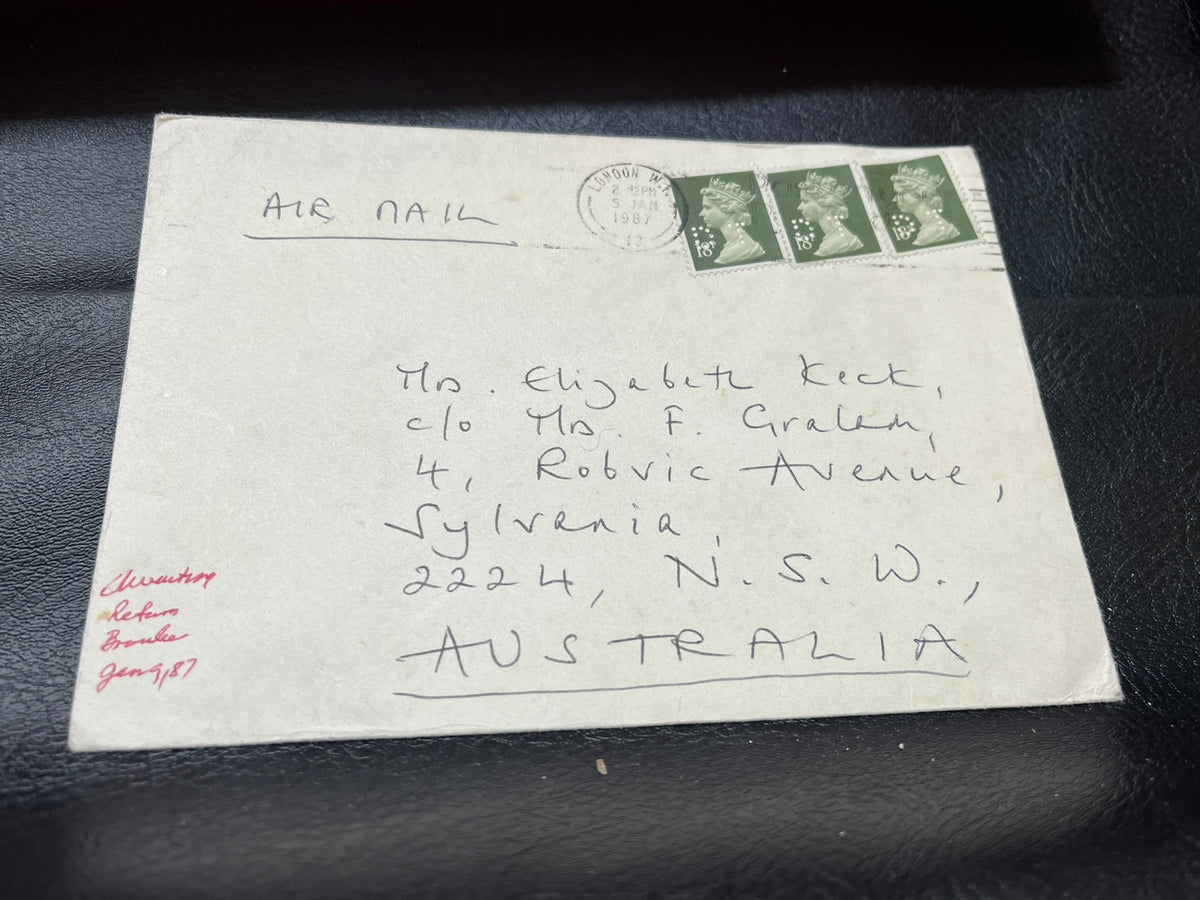 AIR MAIL
LONDON W.1.
2 45 PM
5 JAN
1987
13
18P
18P
18P
Mrs. Elizabeth Keck,
c/o Mrs. F. Graham,
4, Robvic Avenue,
Sylvania,
2224, N.S.W.,
AUSTRALIA
Return
Jan 9, 87